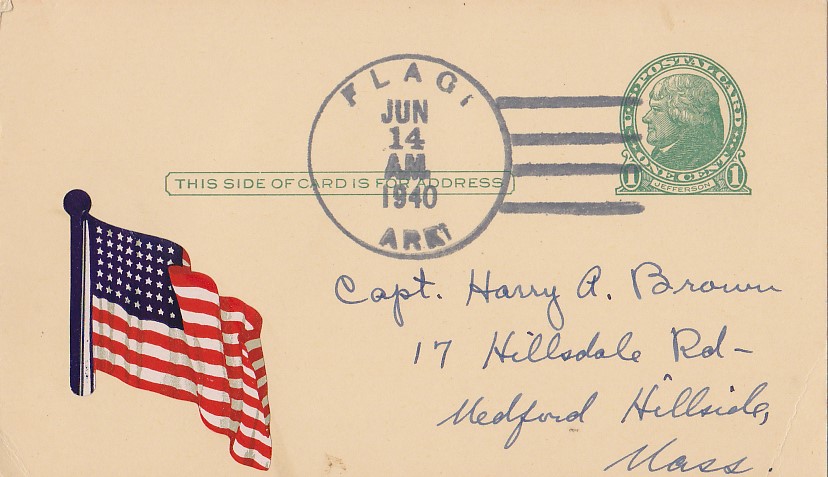 FLAG
JUN
14
AM
1940
ARK
U.S. POSTAL CARD
ONE CENT
1 JEFFERSON 1
THIS SIDE OF CARD IS FOR ADDRESS
Capt. Harry A. Brown
17 Hillsdale Rd-
Medford Hillside,
Mass.